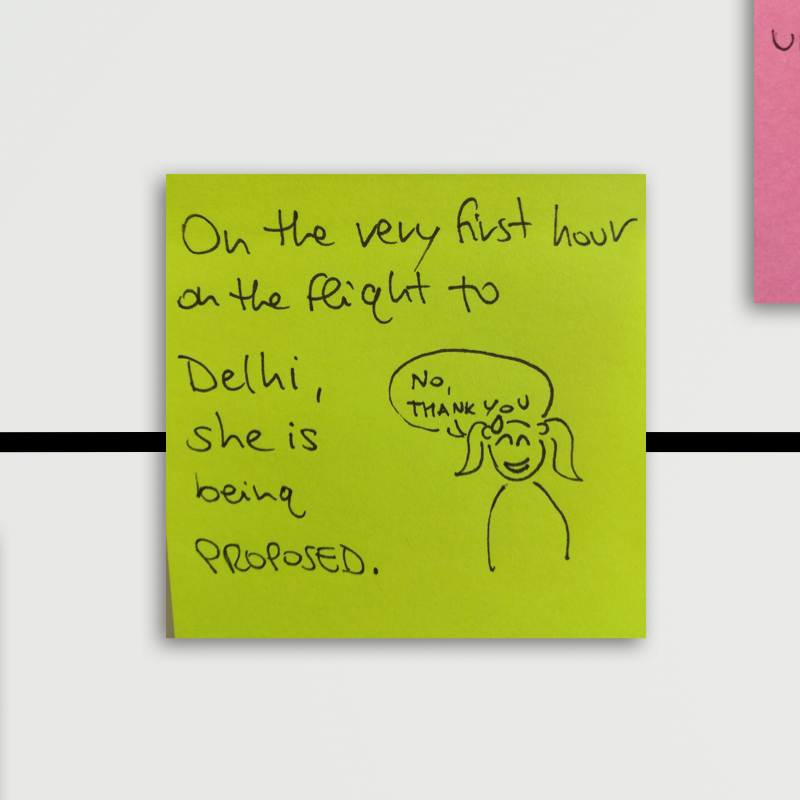 On the very first hour
on the flight to
Delhi,
she is
being
PROPOSED.
No,
THANK YOU